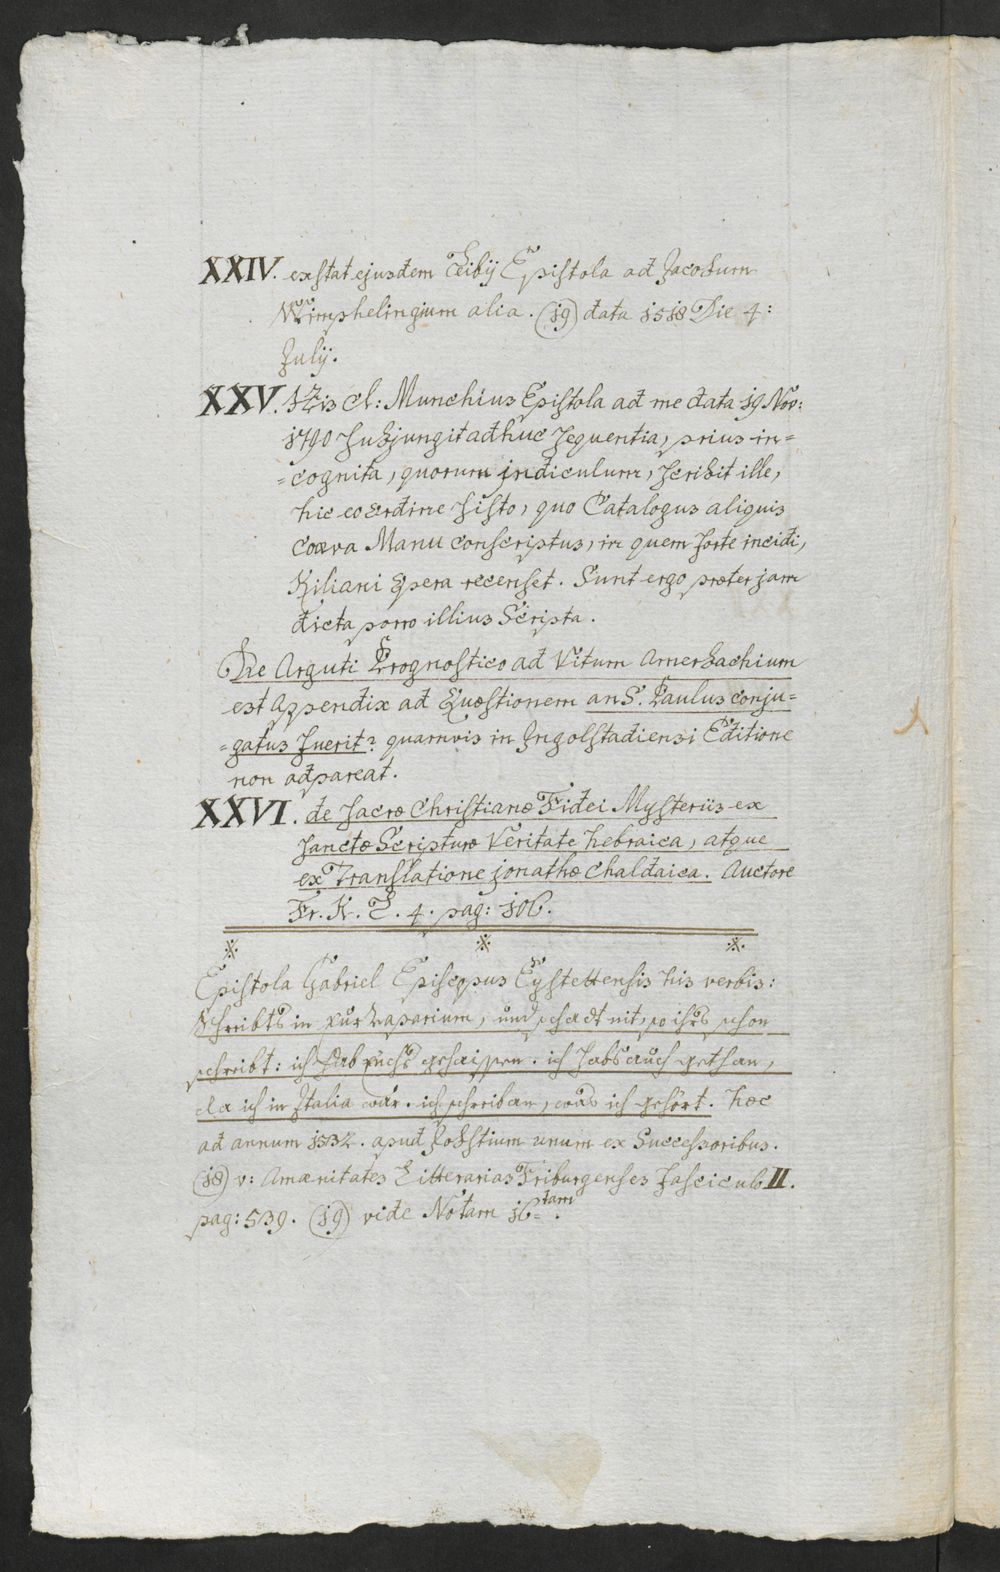 XXIV. exstat ejusdem Leibij Epistola ad Jacobum
Wimphelingium alia. (19) data 1518 Die 4:
Julij.
XXV. Cl: Munchius Epistola ad me data 19 Nov:
1790 subjungit adhuc sequentia, prius in=
=cognita, quorum indiculum, scribit ille,
hic eo ordine sisto, quo Catalogus aliquis
coæva Manu conscriptus, in quem forte incidi,
Kiliani Opera recenset. Sunt ergo præter jam
dicta porro illius Scripta.
De Arguti Prognostico ad Vitum Amerbachium
est Appendix ad Quæstionem an S. Paulus conju=
=gatus fuerit? quamvis in Ingolstadiensi Editione
non adpareat.
XXVI. de sacræ Christianæ Fidei Mysteriis ex
sanctæ Scripturæ Veritate hebraica, atque
ex Translatione jonathæ Chaldaica. Auctore
Fr. K. L. 4. pag: 106.
※ ※ ※
Epistola Gabriel Episcopus Eystettensis his verbis:
schreibts in, und schadt nit, so ihrs schon
schreibt: ich hab euchs gehaissen. ich habs auch gethan,
da ich in Italia wár. ich schreiben, was ich gehört. hæc
ad annum 1532. apud unum ex Successoribus.
(18) v: Amænitates Litterarias Friburgenses Fascicul: II.
pag: 539. (19) vide Notam 16=tam.